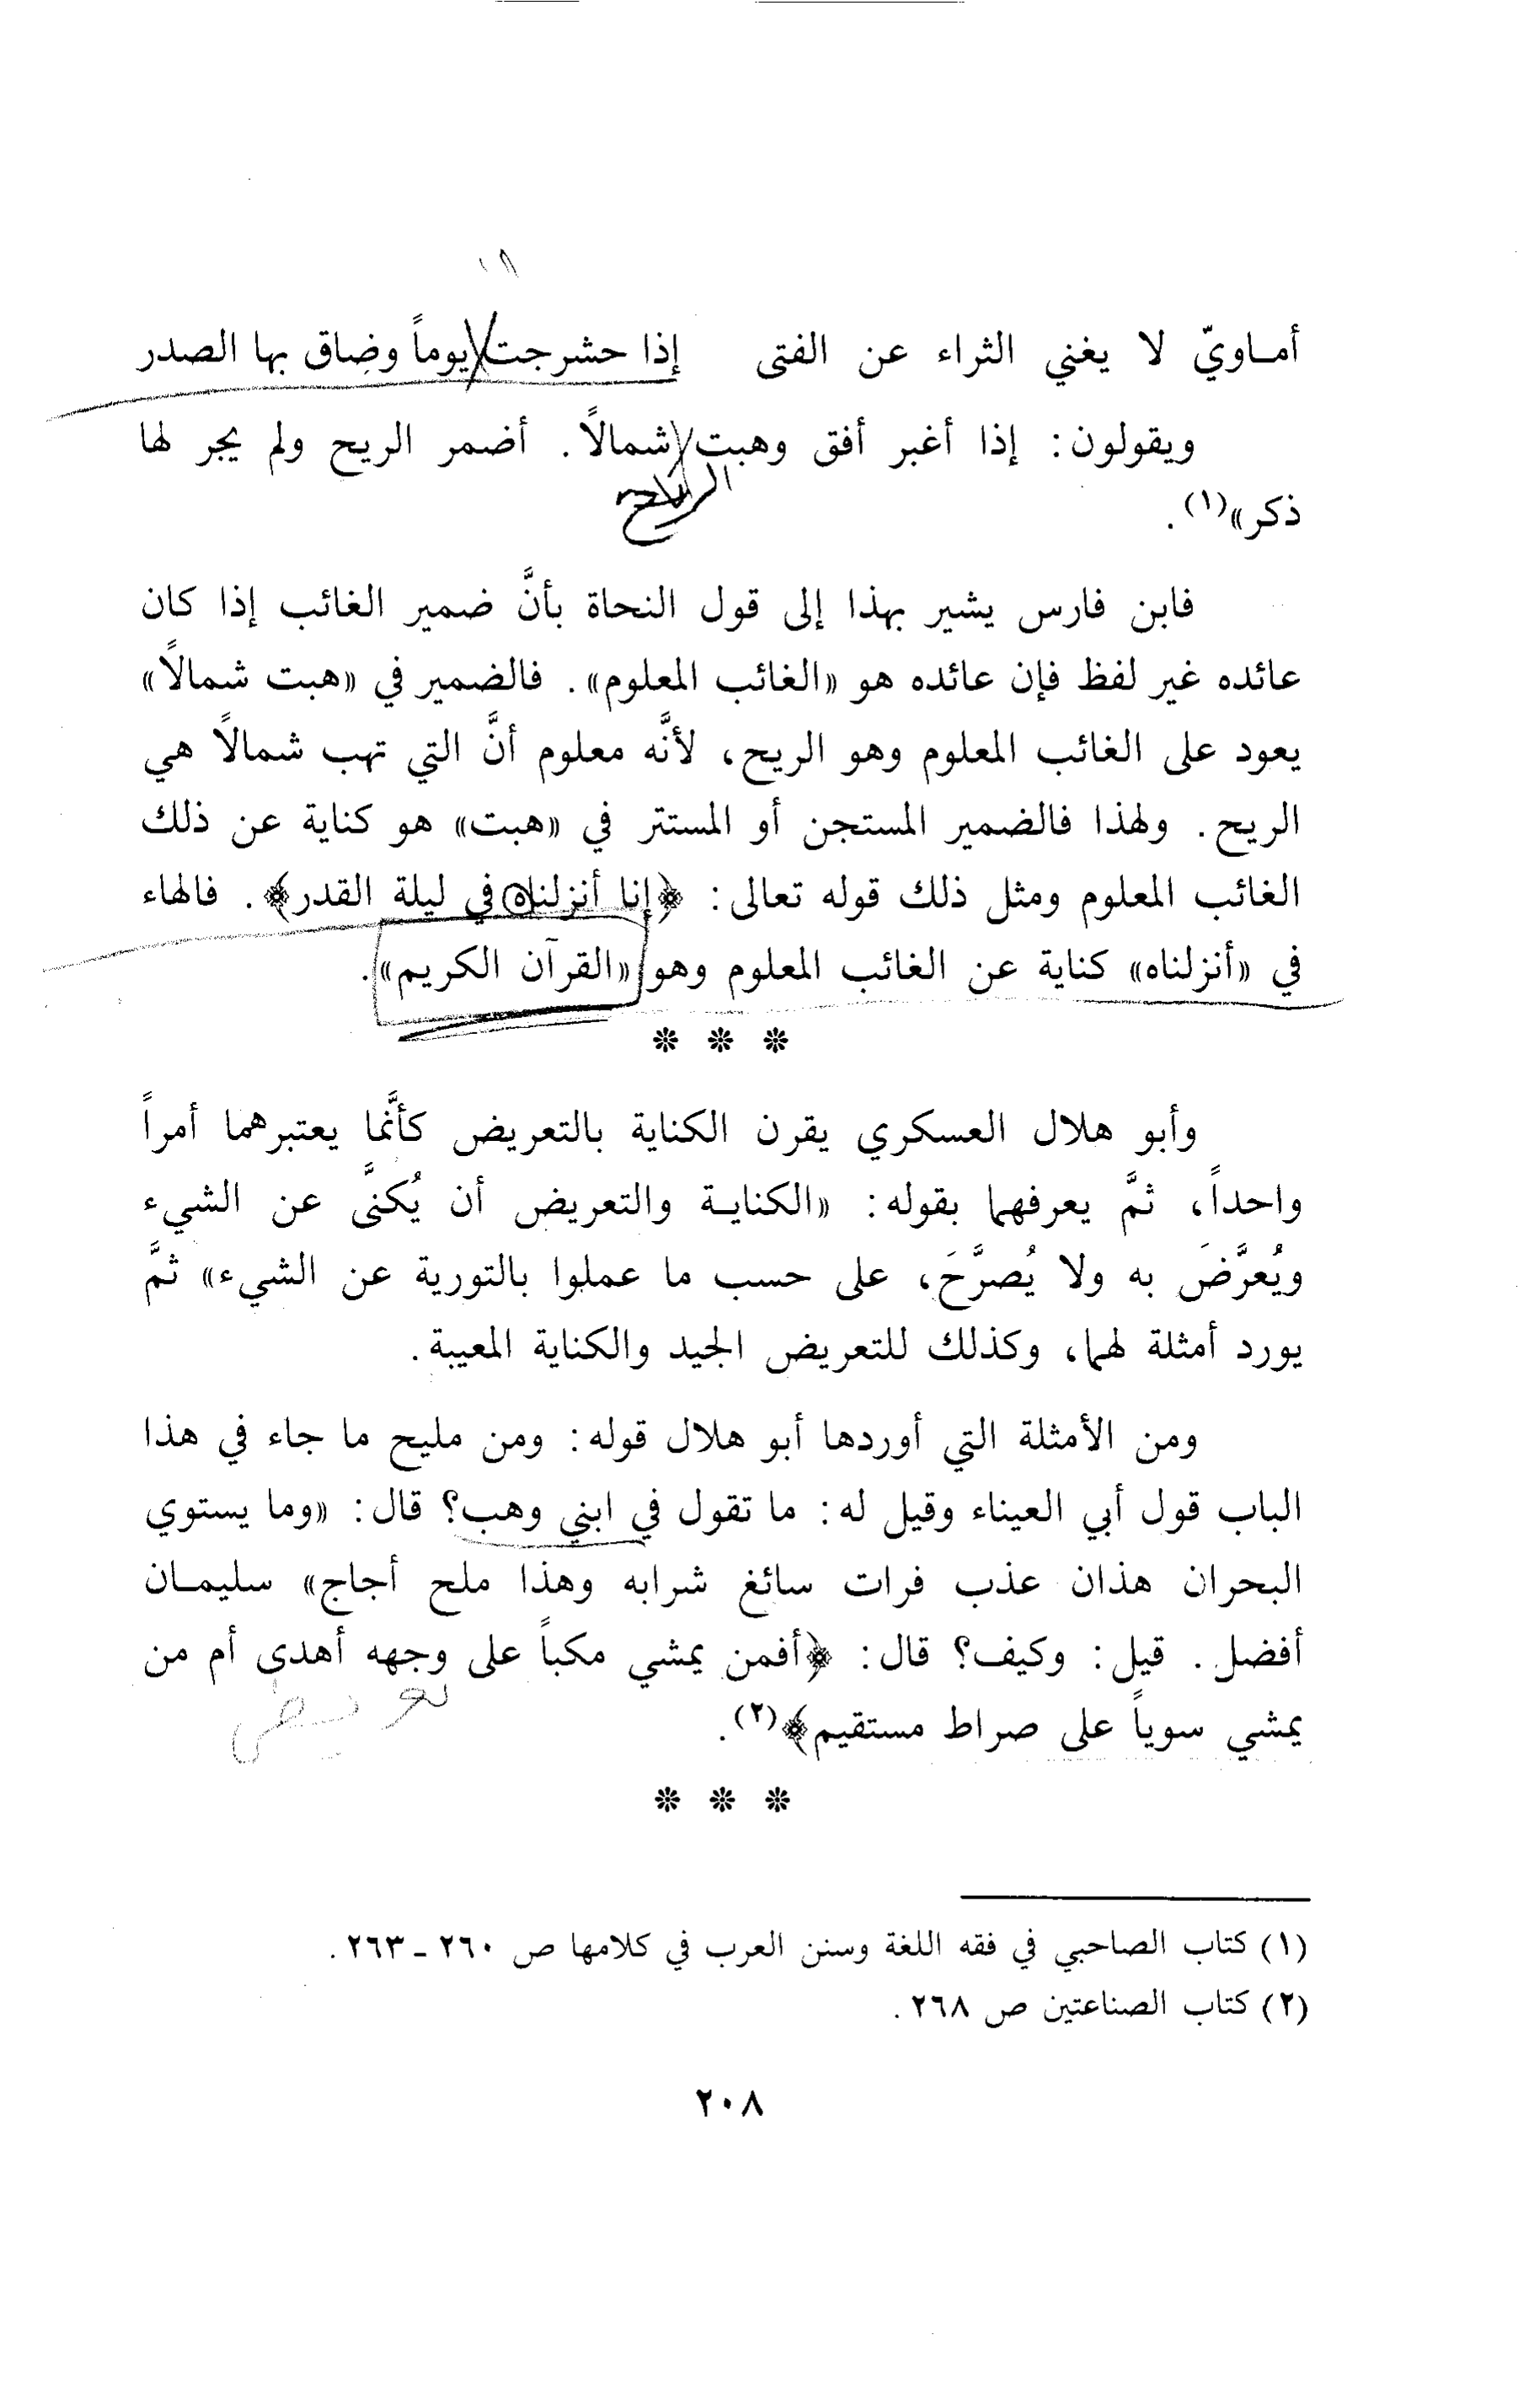 أمـاويّ لا يغني الثراء عن الفتى إذا حشرجت يوماً وضاق بها الصدر
ويقولون: إذا أغبر أفق وهبت شمالاً. أضمر الريح ولم يجر لها
الرياح
ذكر»(١).
فابن فارس يشير بهذا إلى قول النحاة بأنَّ ضمير الغائب إذا كان
عائده غير لفظ فإن عائده هو «الغائب المعلوم». فالضمير في «هبت شمالاً»
يعود على الغائب المعلوم وهو الريح، لأنَّه معلوم أنَّ التي تهب شمالاً هي
الريح. ولهذا فالضمير المستجن أو المستتر في «هبت» هو كناية عن ذلك
الغائب المعلوم ومثل ذلك قوله تعالى: ﴿إنا أنزلناه في ليلة القدر﴾. فالهاء
في «أنزلناه» كناية عن الغائب المعلوم وهو «القرآن الكريم».
* * *
وأبو هلال العسكري يقرن الكناية بالتعريض كأنَّما يعتبرهما أمراً
واحداً، ثمَّ يعرفهما بقوله: «الكنايـة والتعريض أن يُكنَّى عن الشيء
ويُعرَّضَ به ولا يُصرَّحَ، على حسب ما عملوا بالتورية عن الشيء» ثمَّ
يورد أمثلة لهما، وكذلك للتعريض الجيد والكناية المعيبة.
ومن الأمثلة التي أوردها أبو هلال قوله: ومن مليح ما جاء في هذا
الباب قول أبي العيناء وقيل له: ما تقول في ابني وهب؟ قال: «وما يستوي
البحران هذان عذب فرات سائغ شرابه وهذا ملح أجاج» سليمـان
أفضل. قيل: وكيف؟ قال: ﴿أفمن يمشي مكباً على وجهه أهدى أم من
تعريض
يمشي سوياً على صراط مستقيم﴾(٢).
* * *
(١) كتاب الصاحبي في فقه اللغة وسنن العرب في كلامها ص ٢٦٠ - ٢٦٣.
(٢) كتاب الصناعتين ص ٢٦٨.
٢٠٨